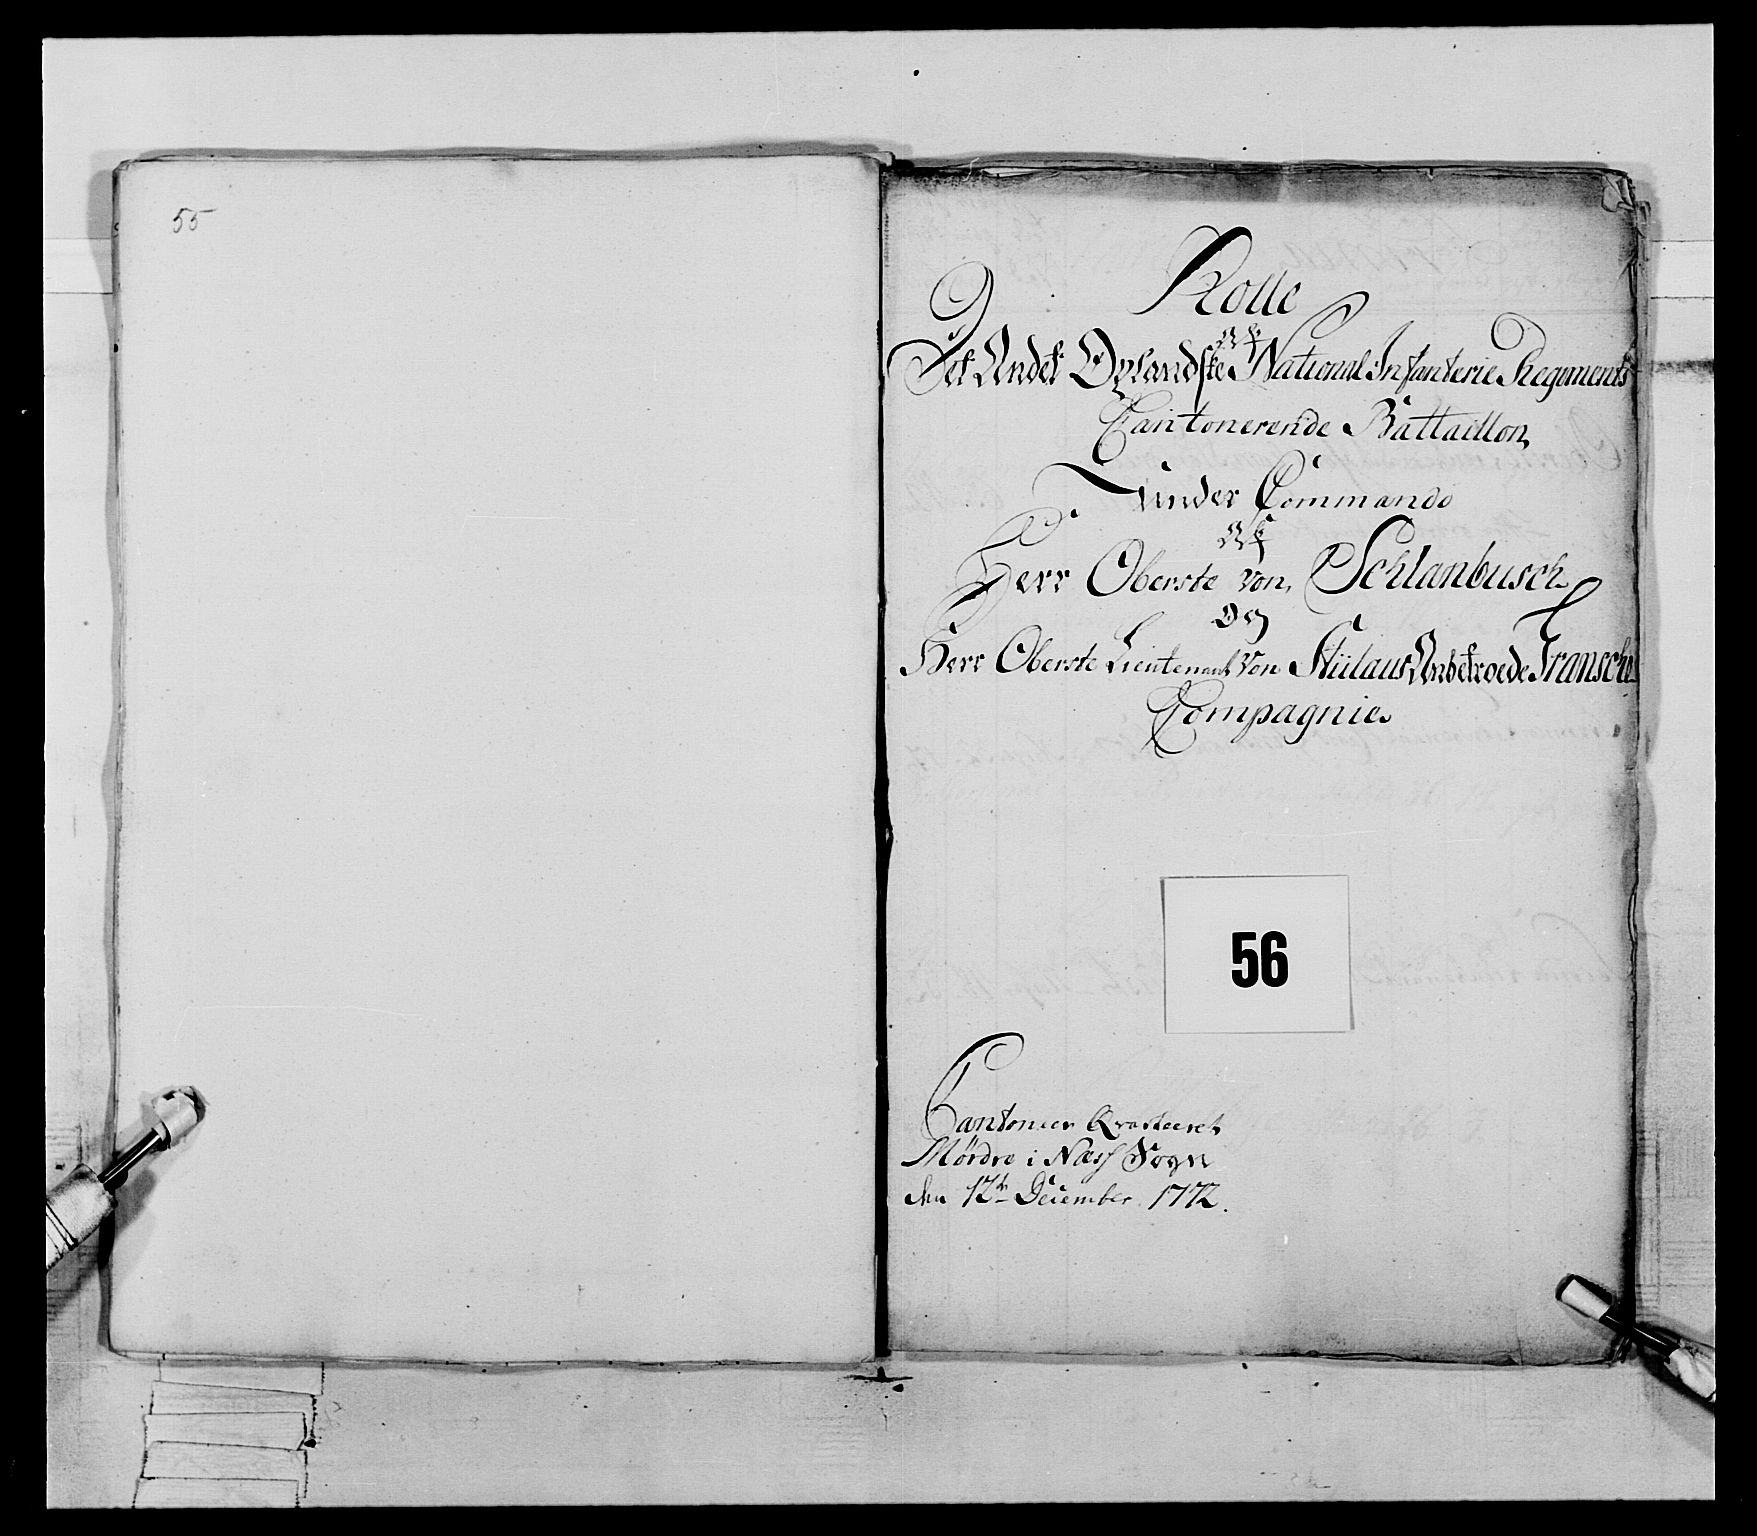 55
Rolle
Af
Det Andet Oplandske National Infanterie Regements
Cantonerende Battaillon
under Commando
Af
Herr Oberste von Schlanbusch
Og
Herr Oberste Lieutenant von Anbetroede Transche
Compagnie
56
Cantoneer Qvarteeret
Mørdre i Næss Sogn
den 12te December 1772.